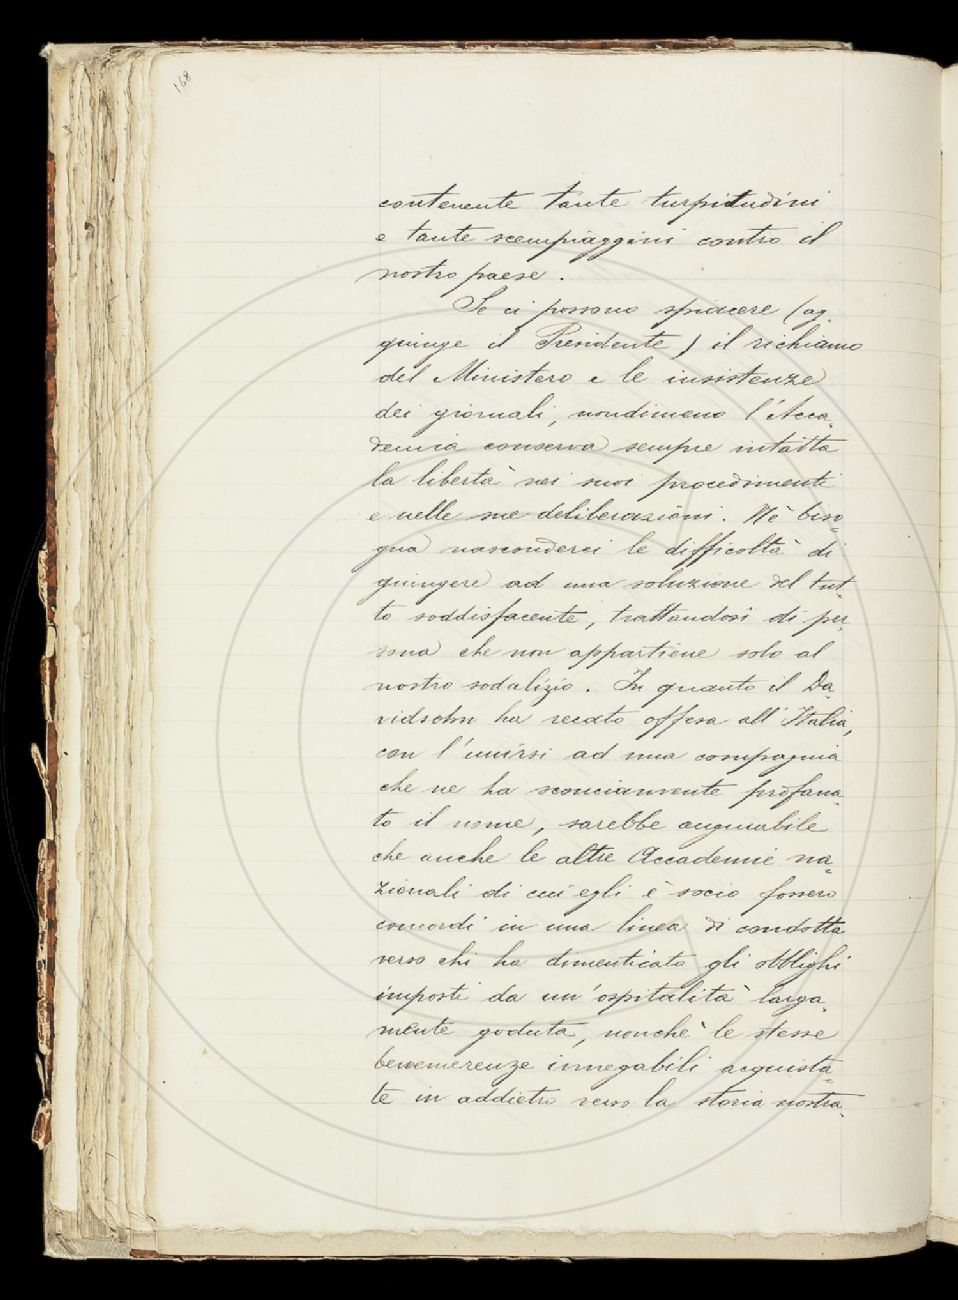 168
contenente tante turpitudini
e tante scempiaggini contro il
nostro paese.
Se ci possono spiacere (ag-
giunge il Presidente) il richiamo
del Ministero e le insistenze
dei giornali, nondimeno l'Acca-
demia conserva sempre intatta
la libertà nei suoi procedimenti
e nelle sue deliberazioni. Nè biso-
gna nasconderci le difficoltà di
giungere ad una soluzione del tut-
to soddisfacente, trattandosi di per-
sona che non appartiene solo al
nostro sodalizio. In quanto il Da-
vidsohn ha recato offesa all'Italia,
con l'unirsi ad una compagnia
che ne ha sconciamente profana-
to il nome, sarebbe augurabile
che anche le altre Accademie na-
zionali di cui egli è socio fossero
concordi in una linea di condotta
verso chi ha dimenticato gli obblighi
imposti da un'ospitalità larga-
mente goduta, nonchè le stesse
benemerenze innegabili acquista-
te in addietro verso la storia nostra.